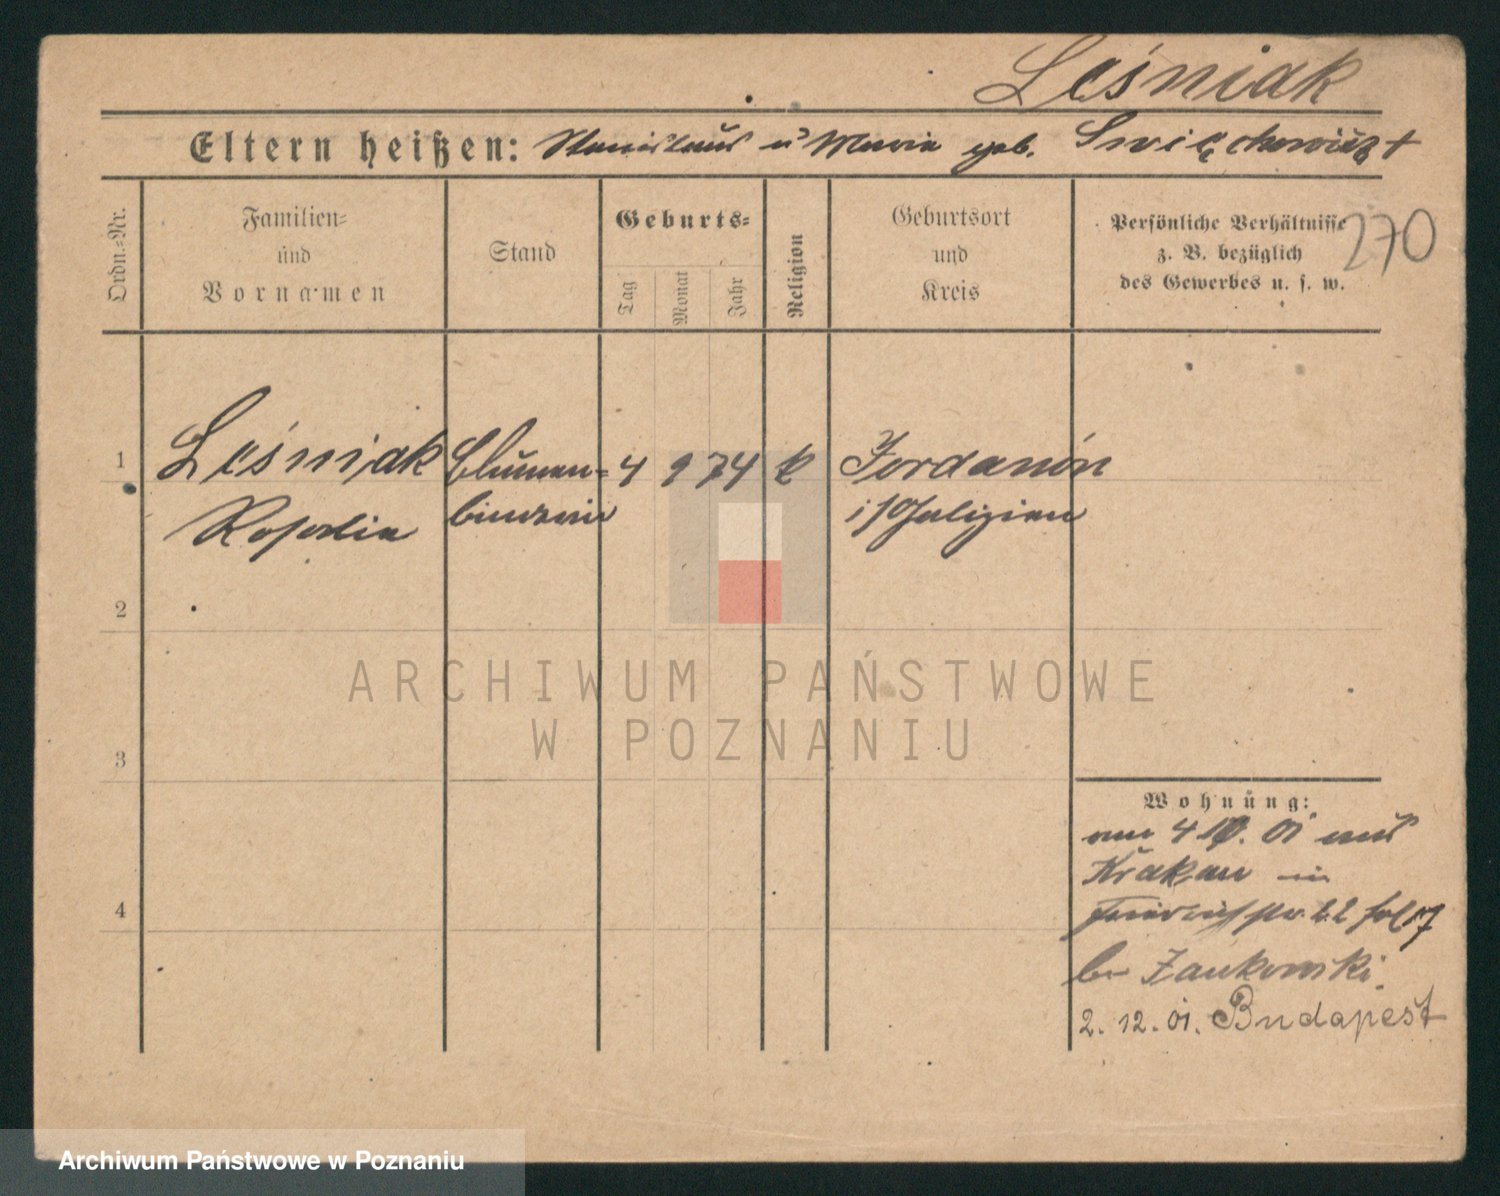 Leśniak
Eltern heißen: Stanislaus u Maria geb.
270
Ordn.=Nr.
Familien=
und
Vornamen
Stand
Geburts=
Tag
Monat
Jahr
Religion
Geburtsort
und
Kreis
Persönliche Verhältnisse
z. B. bezüglich
des Gewerbes u. s. w.
1
Leśniak
Rosalia
Blumen=
binderin
4 9 74 k
Jordanów
i/Galizien
2
3
4
Wohnung:
am 4 10. 01 aus
Krakau in
2. 12. 01. Budapest
ARCHIWUM PAŃSTWOWE
W POZNANIU
Archiwum Państwowe w Poznaniu